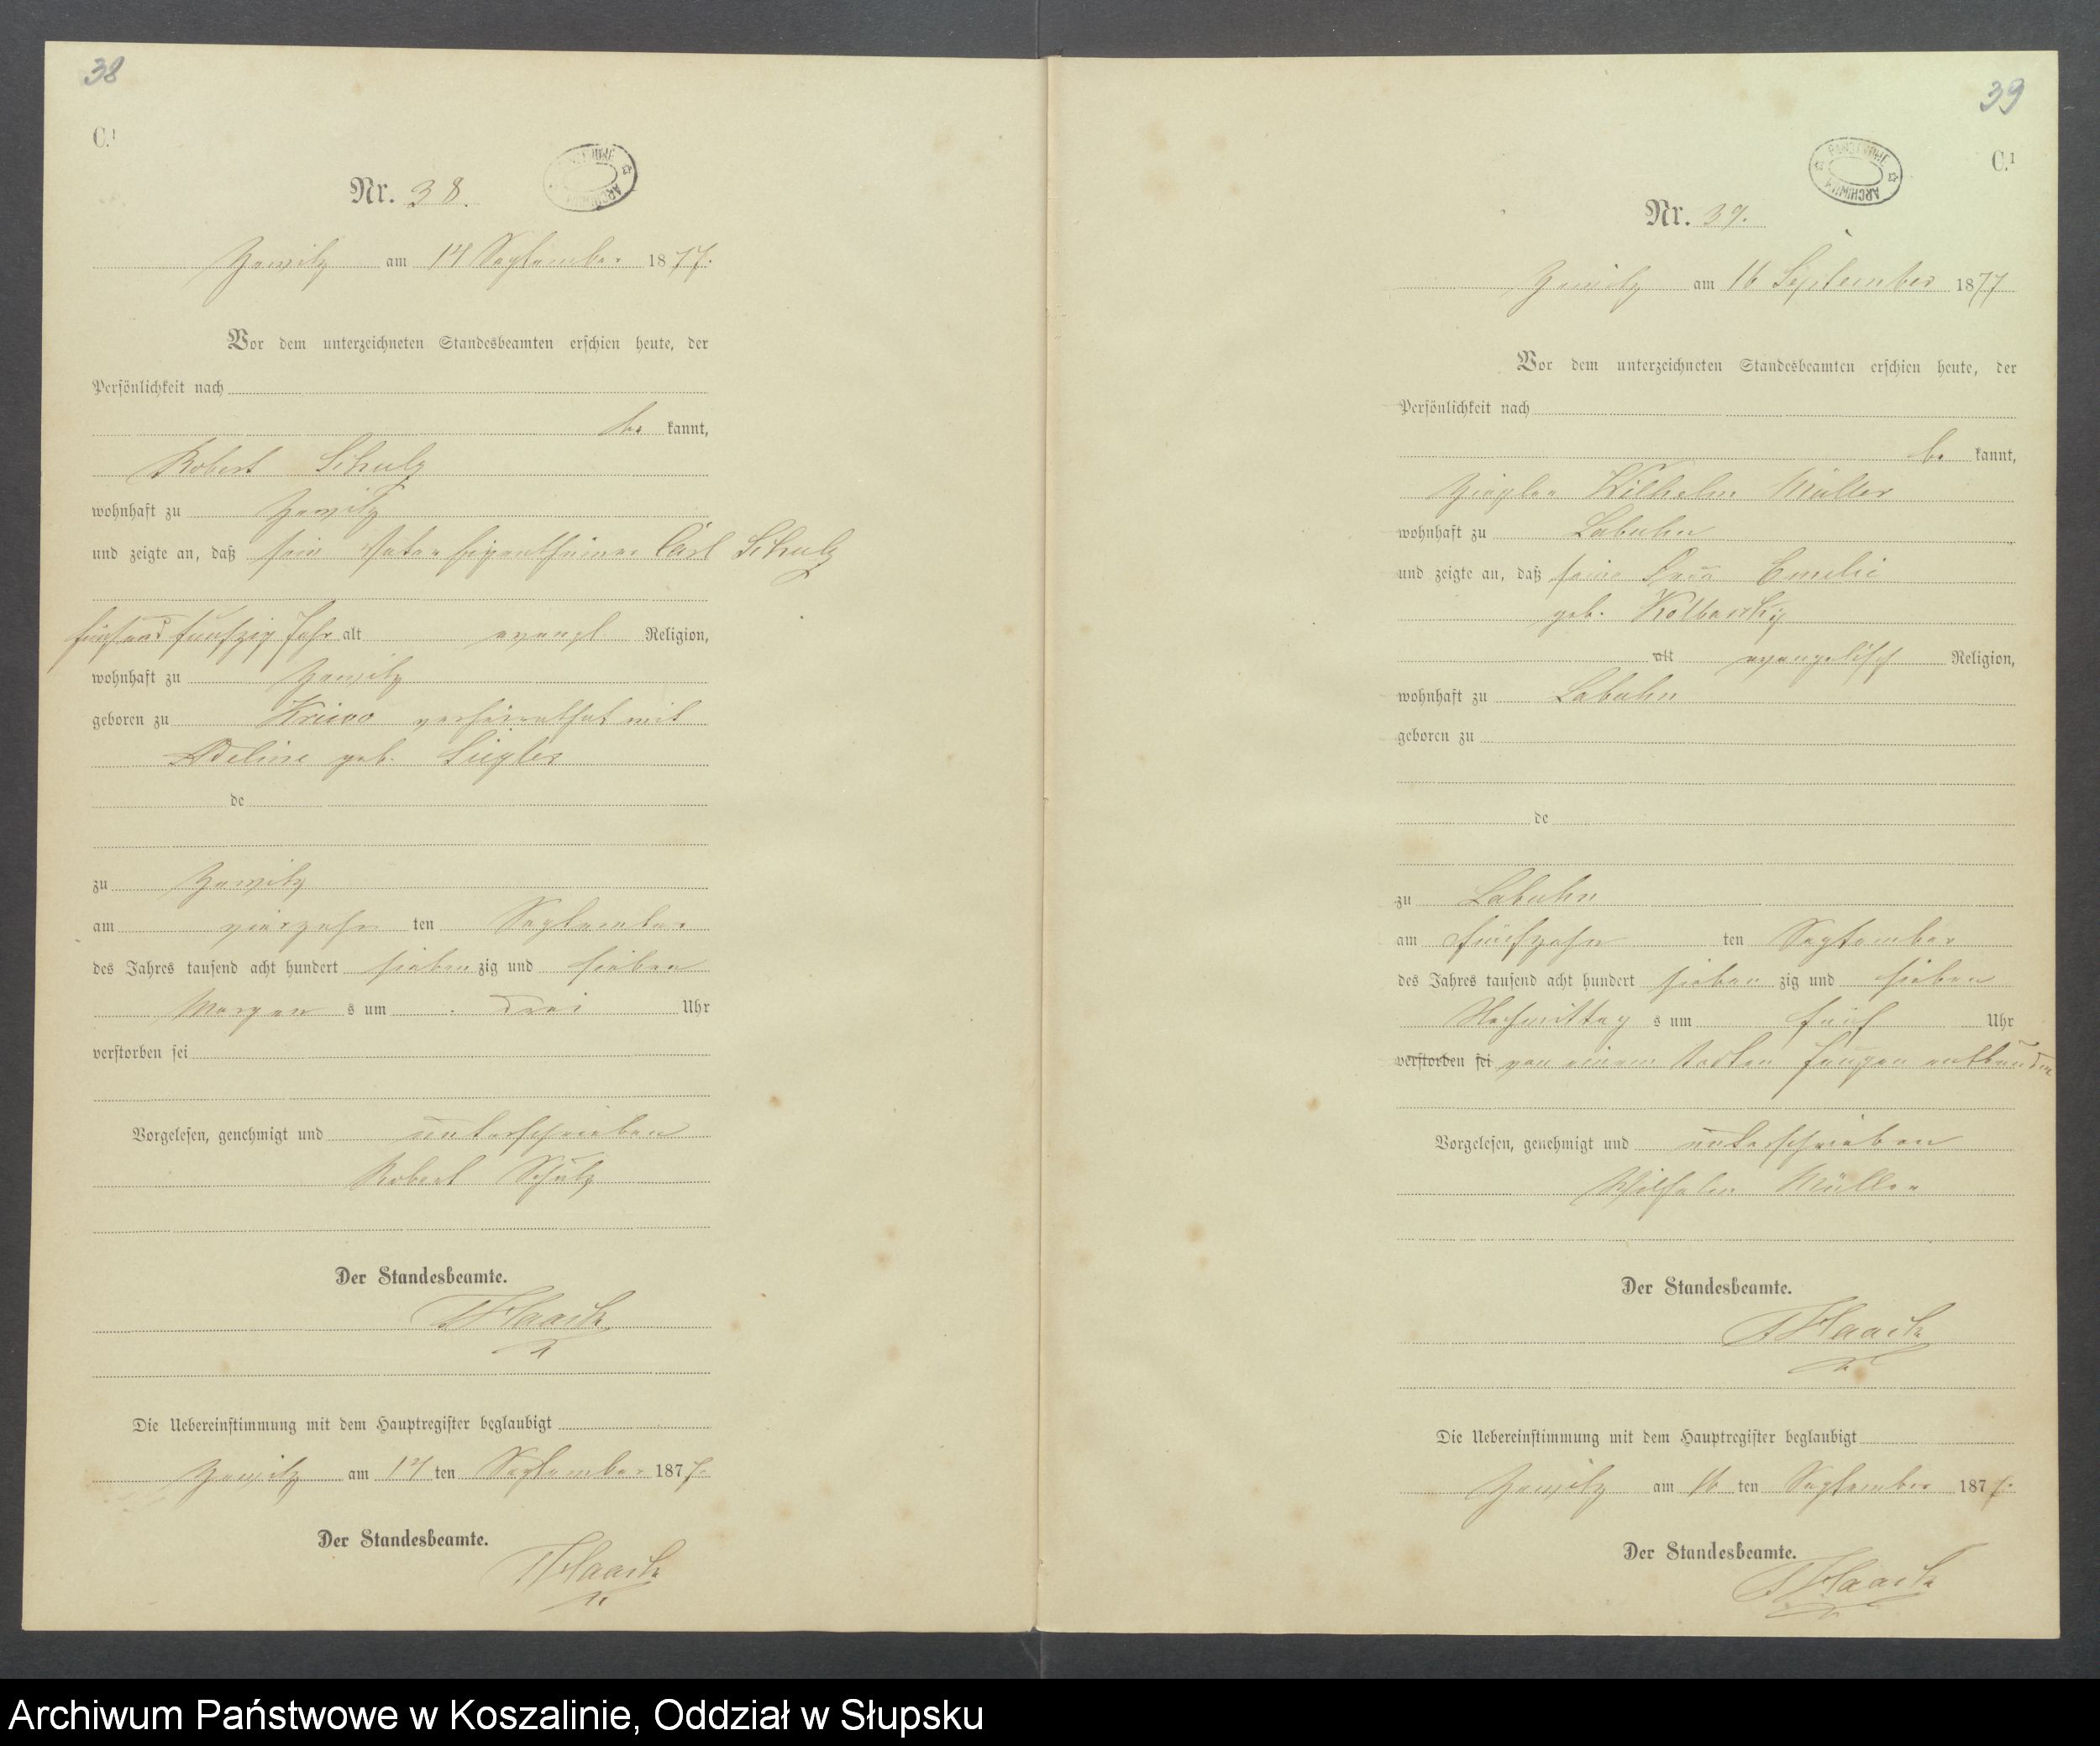 38
C.¹
Nr. 38.
am 14 September 1877.
Vor dem unterzeichneten Standesbeamten erschien heute, der
Persönlichkeit nach
be kannt,
Robert Schulz
wohnhaft zu
und zeigte an, daß sein Vater Eigenthümer Carl Schulz
fünf und funfzig Jahr alt evangl Religion,
wohnhaft zu
geboren zu verheirathet mit
Adeline geb. Ziegler
de
zu
am vierzehn ten September
des Jahres tausend acht hundert sieben zig und sieben
Morgen s um drei Uhr
verstorben sei
Vorgelesen, genehmigt und unterschrieben
Robert Schulz
Der Standesbeamte.
Haack
Die Uebereinstimmung mit dem Hauptregister beglaubigt
am 14 ten September 1877.
Der Standesbeamte.
Haack
39
C.¹
PAŃSTWOWE ARCHIWUM
Nr. 39.
am 16 September 1877
Vor dem unterzeichneten Standesbeamten erschien heute, der
Persönlichkeit nach
be kannt,
Ziegler Wilhelm Müller
wohnhaft zu Labuhn
und zeigte an, daß seine Frau Emilie
geb.
alt evangelisch Religion,
wohnhaft zu Labuhn
geboren zu
de
zu Labuhn
am fünfzehn ten September
des Jahres tausend acht hundert sieben zig und sieben
Nachmittag s um fünf Uhr
verstorben sei von einem todten Jungen entbunden
Vorgelesen, genehmigt und unterschrieben
Wilhelm Müller
Der Standesbeamte.
Haack
Die Uebereinstimmung mit dem Hauptregister beglaubigt
am 16 ten September 1877.
Der Standesbeamte.
Haack
Archiwum Państwowe w Koszalinie, Oddział w Słupsku